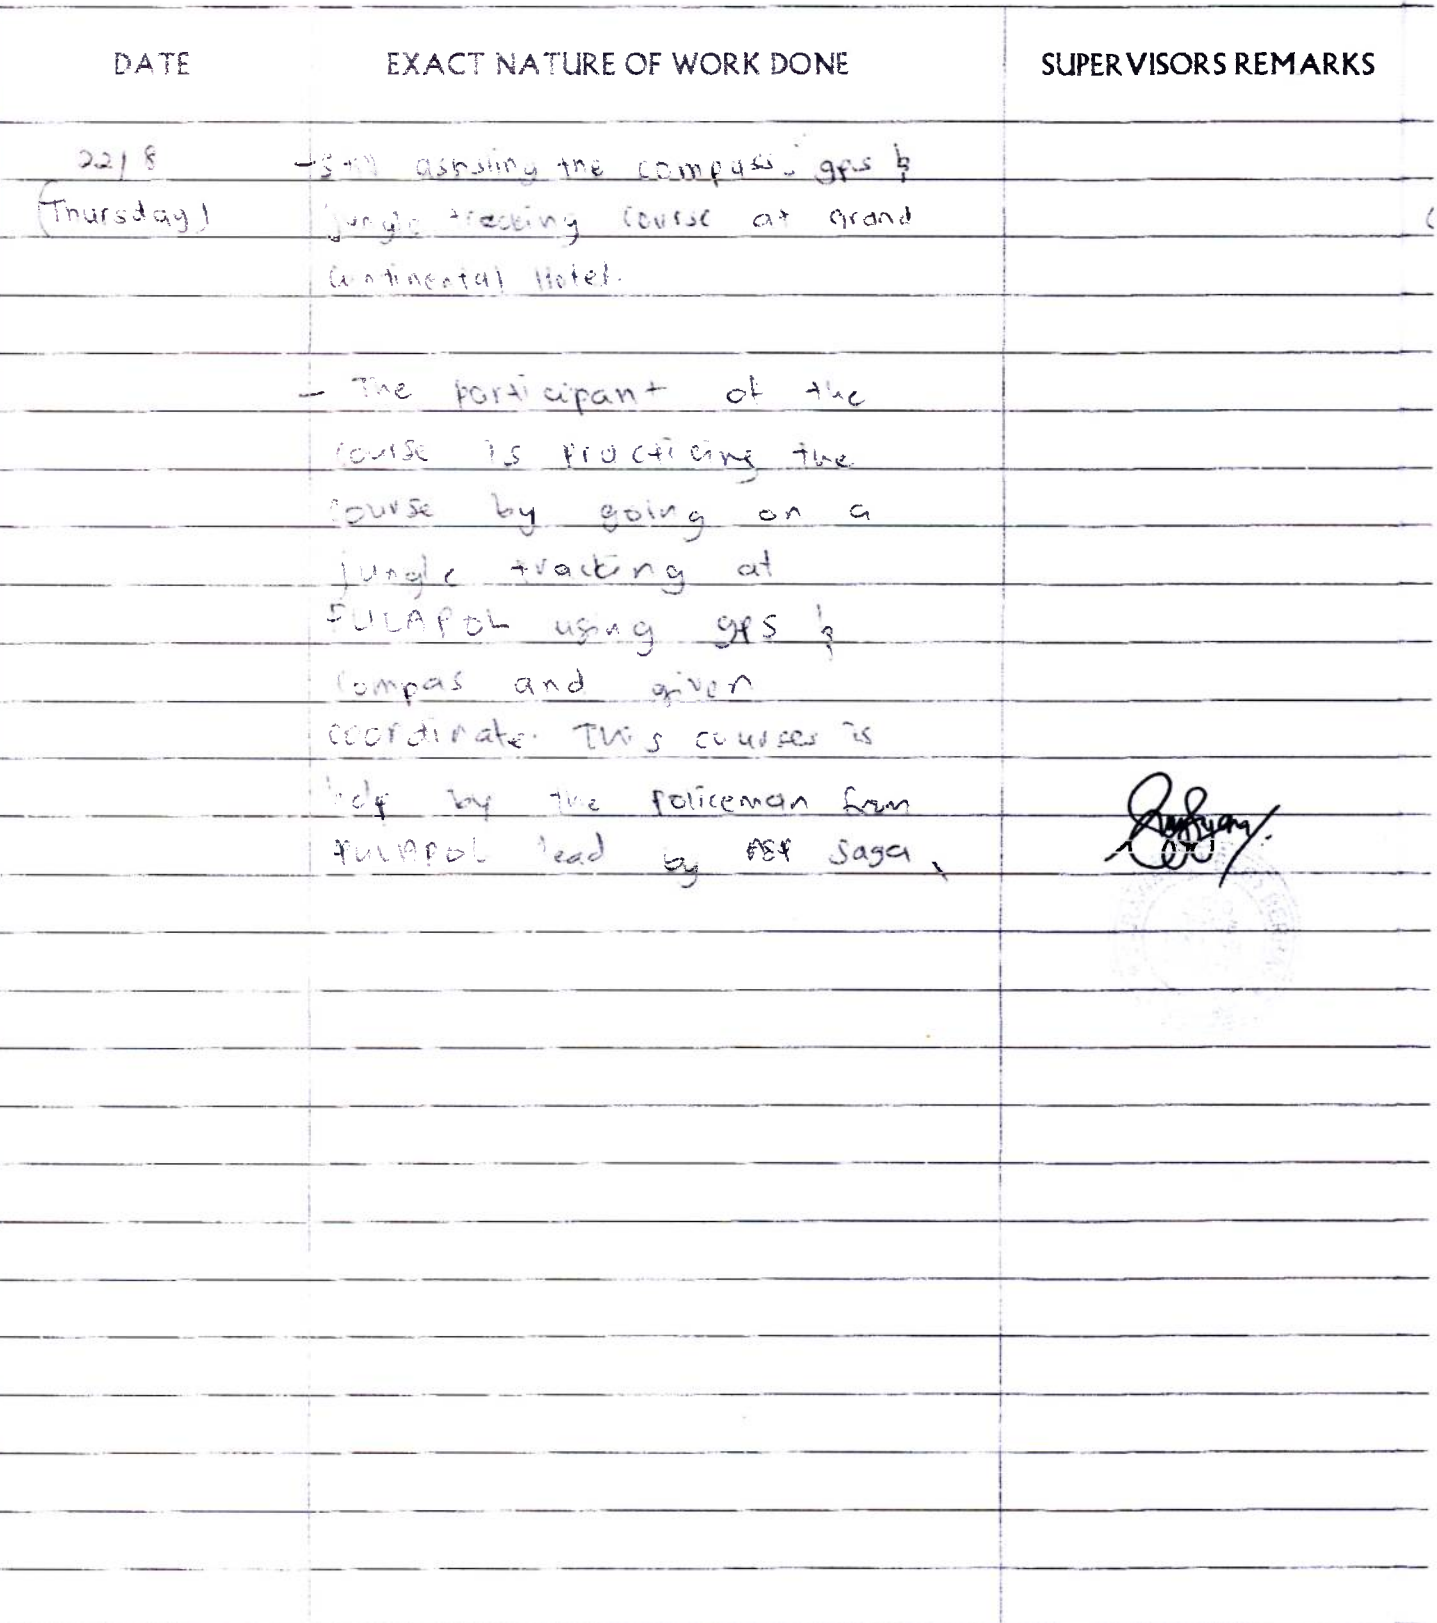 DATE EXACT NATURE OF WORK DONE SUPERVISORS REMARKS
22/8 - Still the compass, gps &
(Thursday) jungle tracking course at Grand
Continental Hotel.
- The participant of the
course is practicing the
course by going on a
jungle tracking at
PULAPOL using gps &
compas and given
coordinate. This courses is
by the policeman from
PULAPOL lead by Saga.